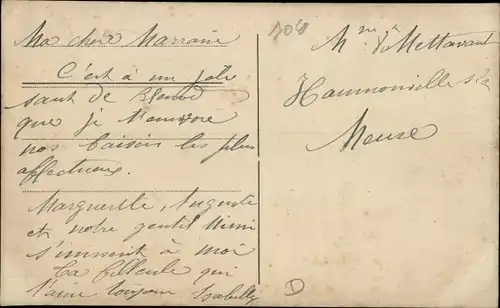 Ma cher Marraine
C'est à un joli
saut de
que je t'envoie
nos baisers les plus
affectueux.
Marguerite, Auguste
et notre gentil Mimi
s'unnent à moi
Ta filleule qui
t'aime toujour Isabelle
304
Mme de Mettavant
Hannonville s/la
Meuse
D